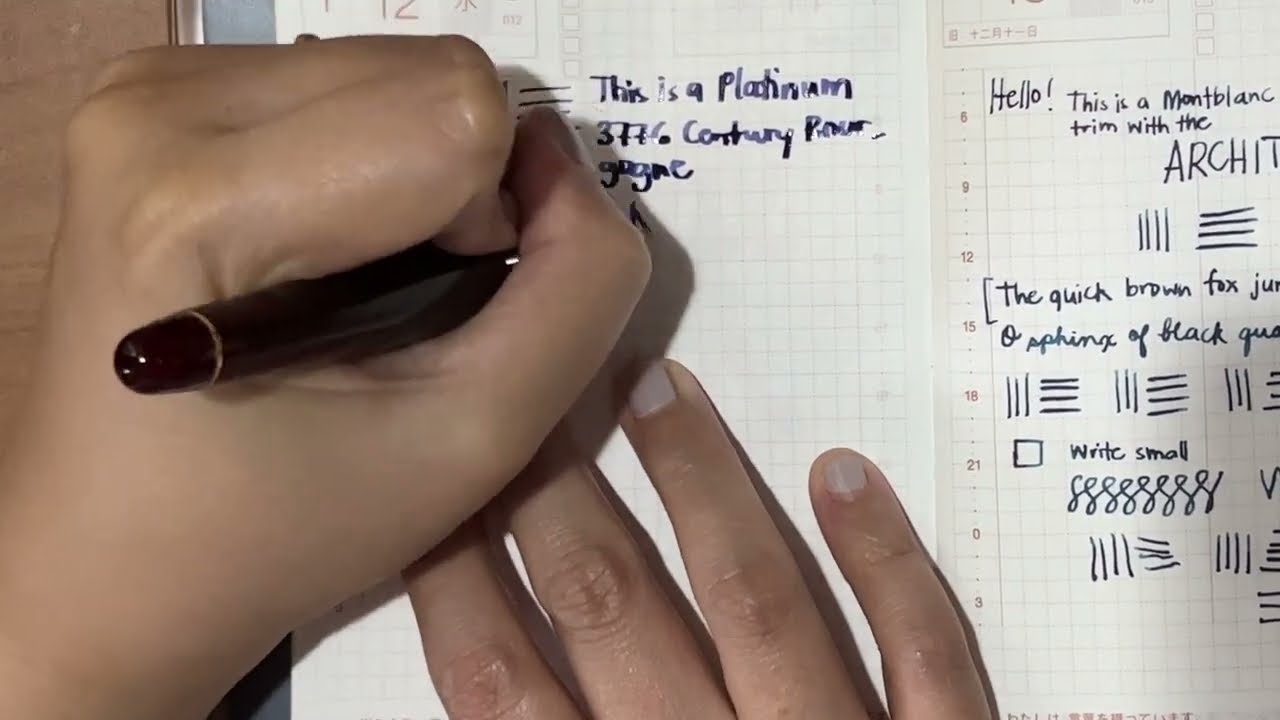 12 水
012
This is a Platinum
3776 Century Bour-
gogne
旧 十二月十一日
Hello! This is a Montblanc
trim with the
ARCHIT
[The quick brown fox jum
O sphinx of black qua
Write small
6
9
12
15
18
21
0
3
わたしは、言葉を